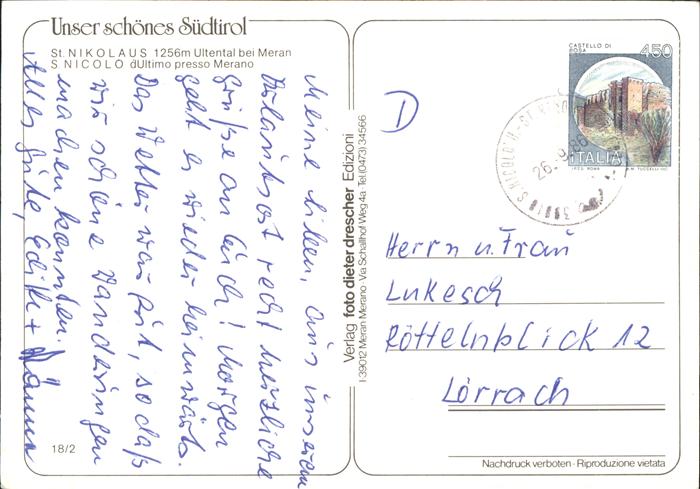 Unser schönes Südtirol
St. NIKOLAUS 1256m Ultental bei Meran
S. NICOLO dUltimo presso Merano
Meine Lieben, aus unserem
Urlaubsort recht herzliche
Grüße an Euch! Morgen
geht es wieder heimwärts.
Das Wetter war gut, sodaß
wir schöne Wanderungen
machen konnten.
Alles Gute, Edith +
18/2
Verlag foto dieter drescher Edizioni
I-39012 Meran Merano · Via Schallhof Weg 4a · Tel.(0473)34566
D
CASTELLO DI ROSA
450
ITALIA
I.P.Z.S. ROMA
26.-9.86
Herrn u. Frau
Lukesch
Röttelnblick 12
Lörrach
Nachdruck verboten · Riproduzione vietata